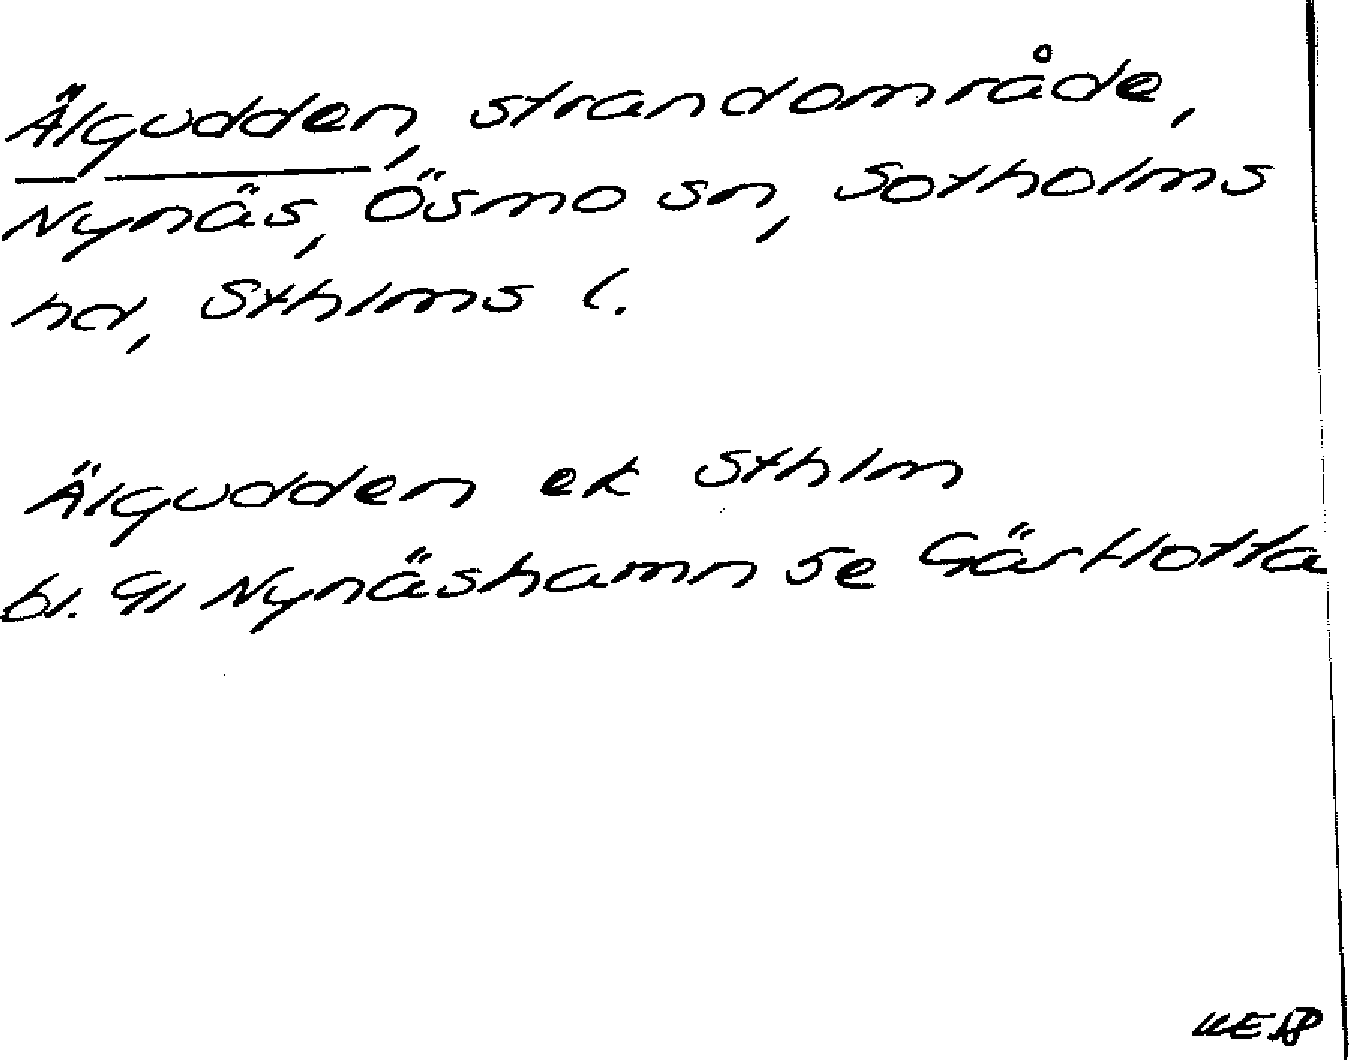 Älgudden, strandområde,
Nynäs, Ösmo sn, Sotholms
hd, Sthlms l.
Älgudden ek Sthlm
bl. 91 Nynäshamn se Gärtlotta